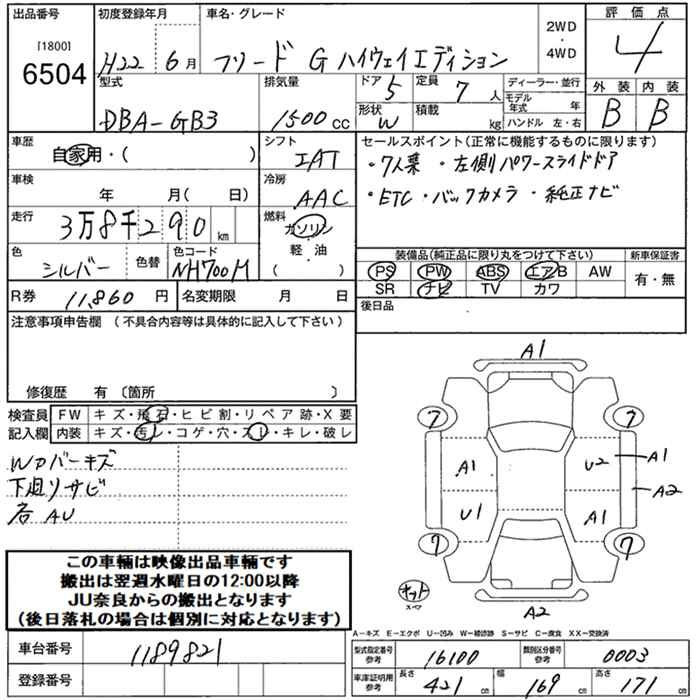 出品番号 [1800] 6504
初度登録年月 H22 6月
車名・グレード フリード G ハイウェイエディション
2WD・4WD
評価点 4
外装 B 内装 B
型式 DBA-GB3
排気量 1500 CC
ドア 5
形状 W
定員 7人
積載 kg
ディーラー・並行
モデル年式 年
ハンドル 左・右
車歴 自家用・( )
シフト IAT
セールスポイント(正常に機能するものに限ります)
・7人乗 ・左側パワースライドドア
・ETC・バックカメラ・純正ナビ
車検 年 月( 日)
冷房 AAC
走行 3万8千290km
燃料 ガソリン・軽油・( )
色 シルバー 色替
色コード NH700M
装備品(純正品に限り丸をつけて下さい)
PS PW ABS エアB AW
SR ナビ TV カワ
新車保証書 有・無
R券 11,860円
名変期限 月 日
後日品
注意事項申告欄 (不具合内容等は具体的に記入して下さい)
修復歴 有 〔箇所 〕
検査員記入欄
FW キズ・飛石・ヒビ割・リペア跡・X要
内装 キズ・汚レ・コゲ・穴・スレ・キレ・破レ
Wカバーキズ
下廻リサビ
各AU
A1
7 7
A1 U2 A1
A2
U1 A1
7 7
スペア
A2
この車輛は映像出品車輛です
搬出は翌週水曜日の12:00以降
JU奈良からの搬出となります
(後日落札の場合は個別に対応となります)
A-キズ E-エクボ U-凹み W-補修跡 S-サビ C-腐食 XX-交換済
車台番号 1189821
登録番号
型式指定番号 参考 16100
類別区分番号 参考 0003
車庫証明用 参考 長さ 421cm 幅 169cm 高さ 171cm